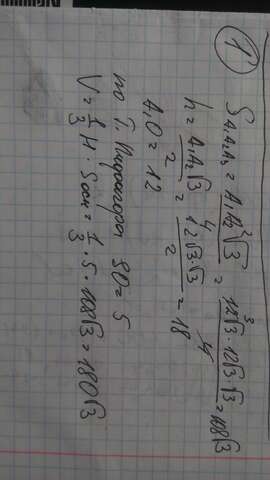 1
S A₁A₂A₃ = A₁A₂²√3 / 4 = 12√3 · 12√3 · √3 / 4 = 108√3
h = A₁A₂√3 / 2 = 12√3·√3 / 2 = 18
A₁O = 12
по Т. Пифагора SO = 5
V = 1/3 H · Sосн = 1/3 · 5 · 108√3 = 180√3